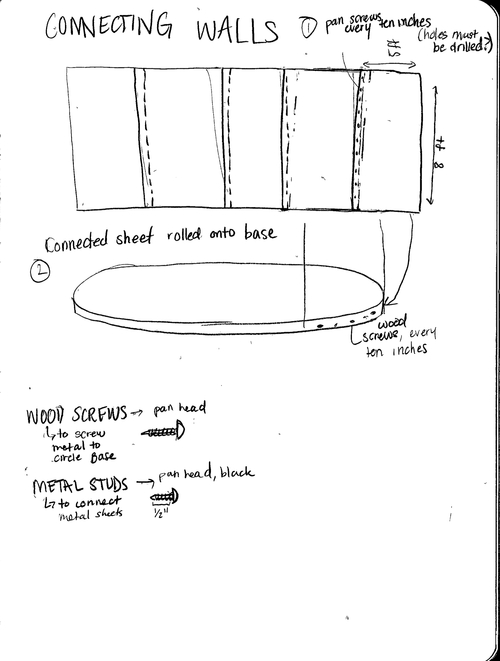 CONNECTING WALLS
① pan screws
every ten inches
(holes must
be drilled?)
5 ft
8 ft
Connected sheet rolled onto base
②
wood
screws, every
ten inches
WOOD SCREWS → pan head
↳ to screw
metal to
circle Base
METAL STUDS → pan head, black
↳ to connect
metal sheets
1/2"